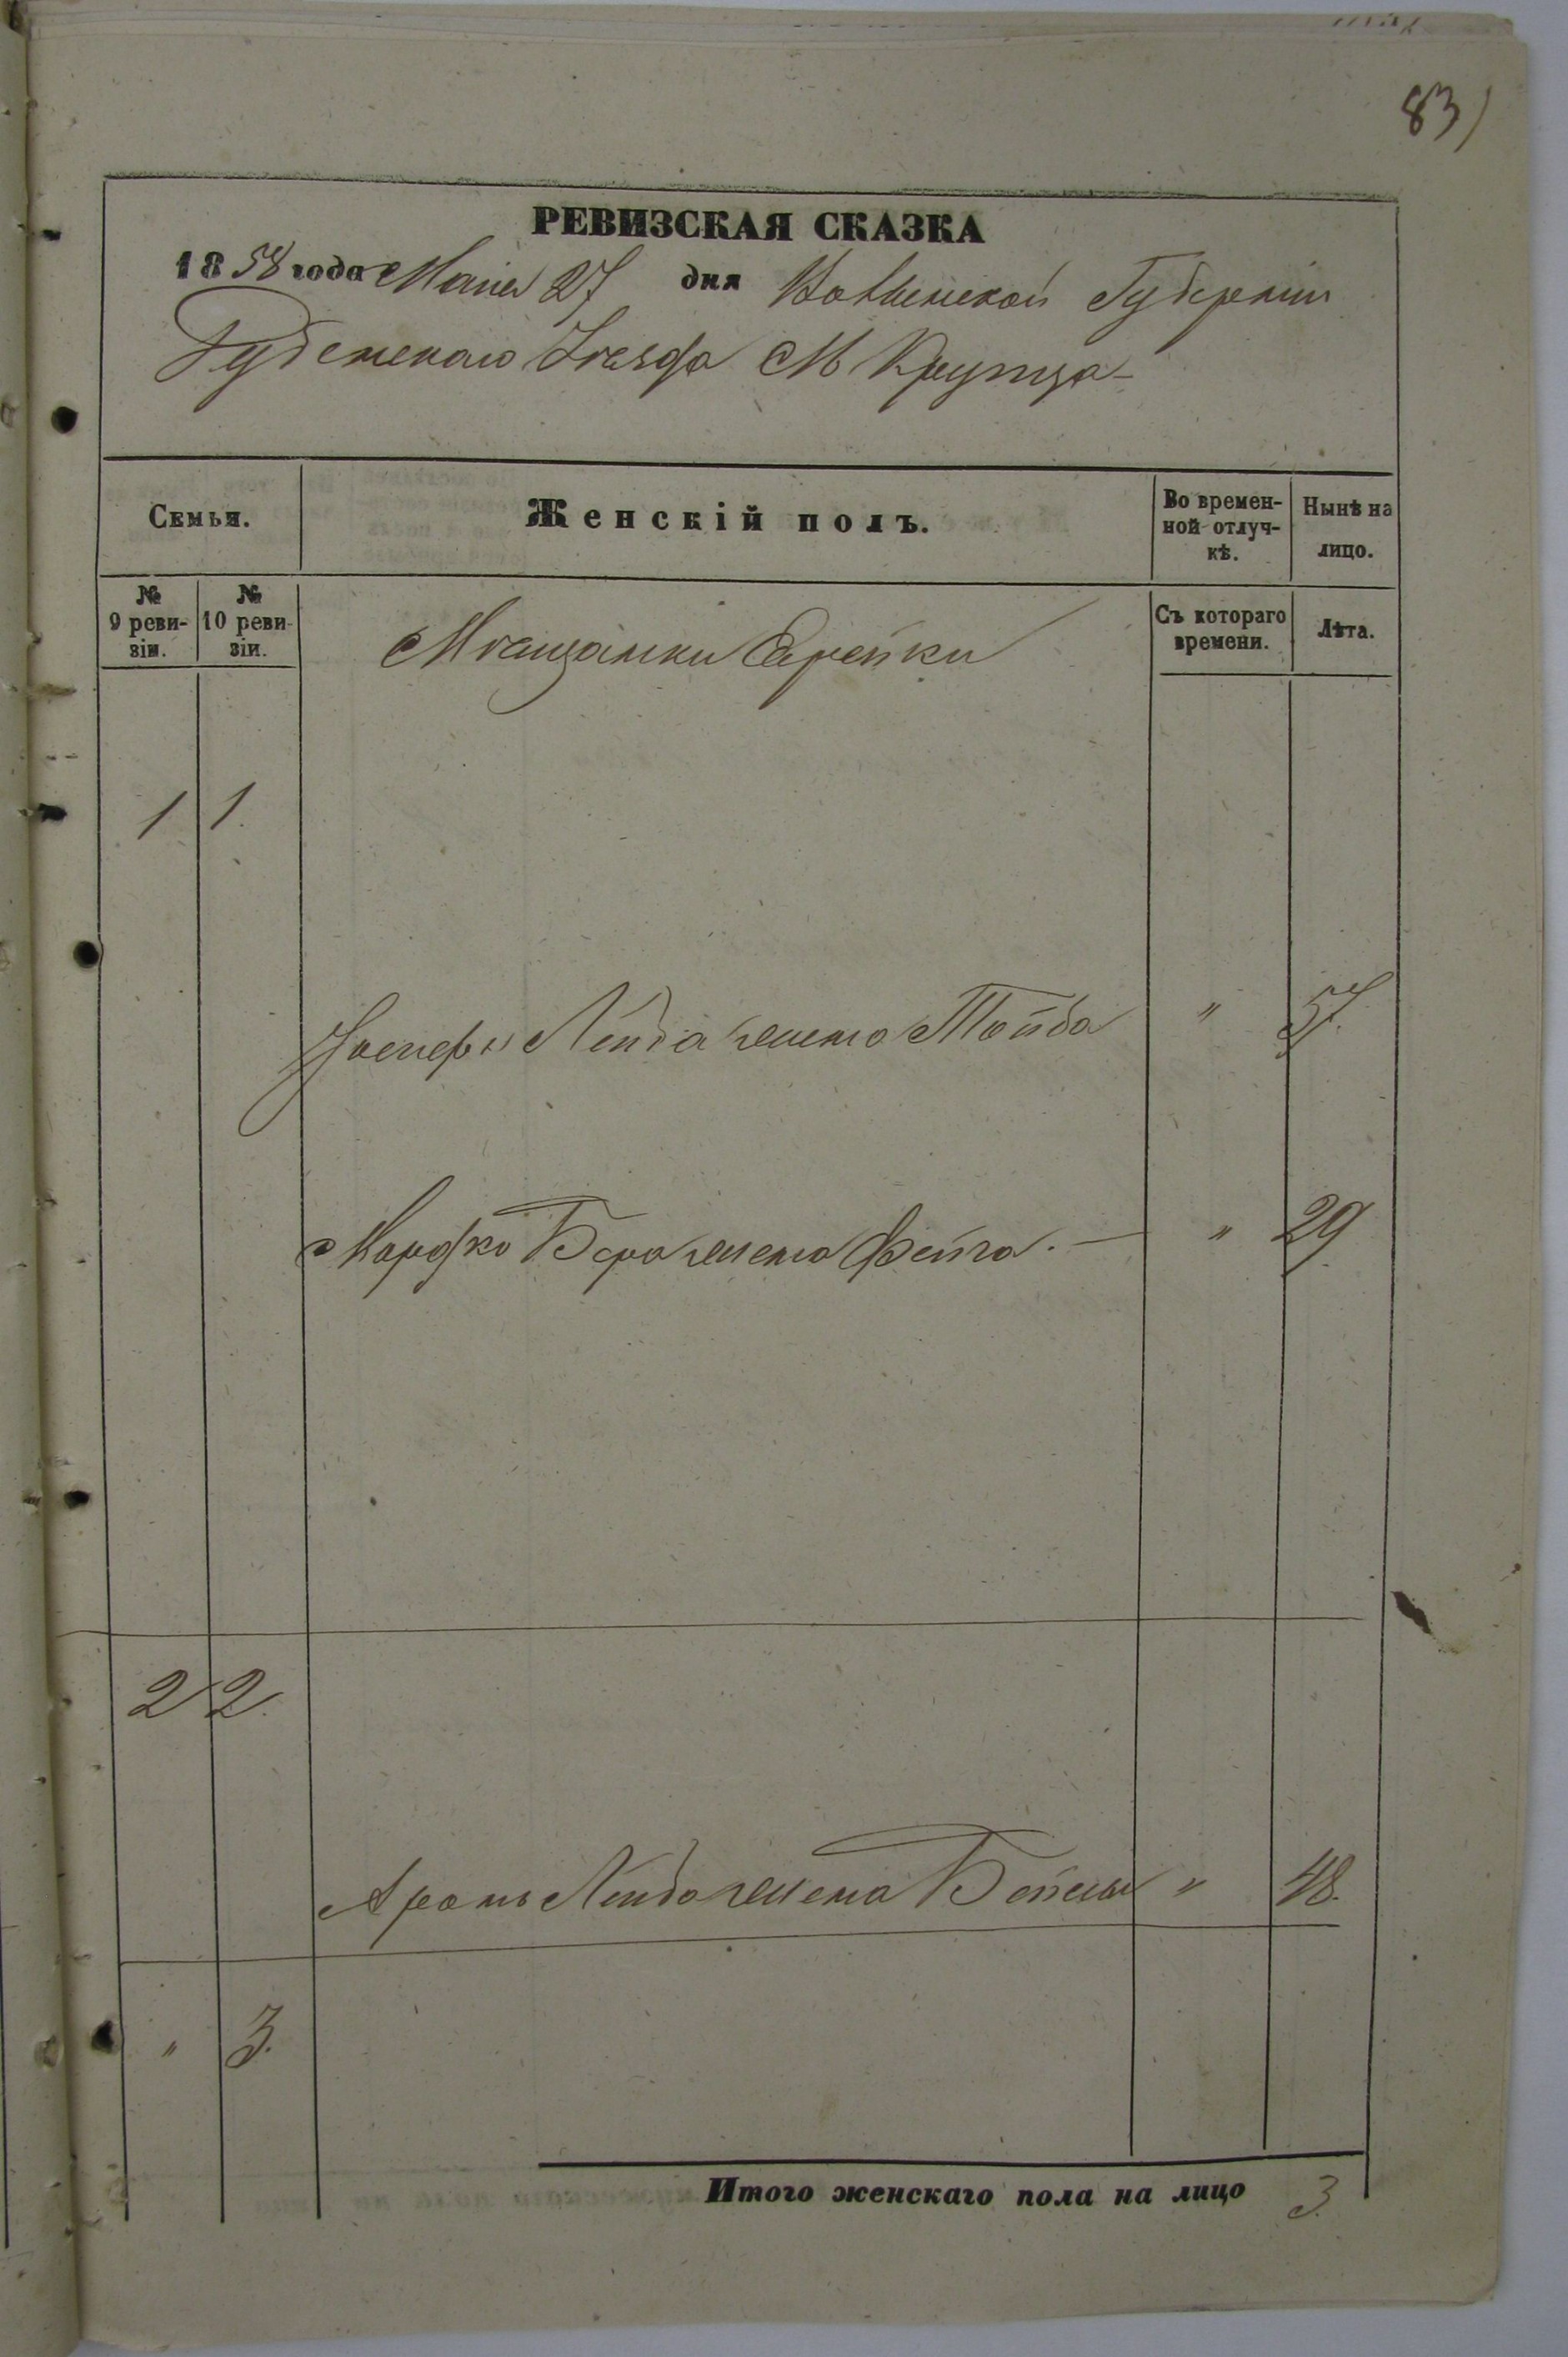 83
РЕВИЗСКАЯ СКАЗКА
1858 года Маія 27 дня Волынской Губерніи
Дубенскаго Уезда М Крупца
Семья.
Женскій полъ.
Во времен-
ной отлуч-
кѣ.
Нынѣ на
лицо.
№
9 реви-
зіи.
№
10 реви-
зіи.
Мещанки Еврейки
Съ котораго
времени.
Лѣта.
1 1.
Лейба жена Тойба " 57.
Мордко Бера жена Фейга. — " 29
2 2.
Аронъ Лейба жена Бейла " 48.
" 3.
Итого женскаго пола на лицо 3.